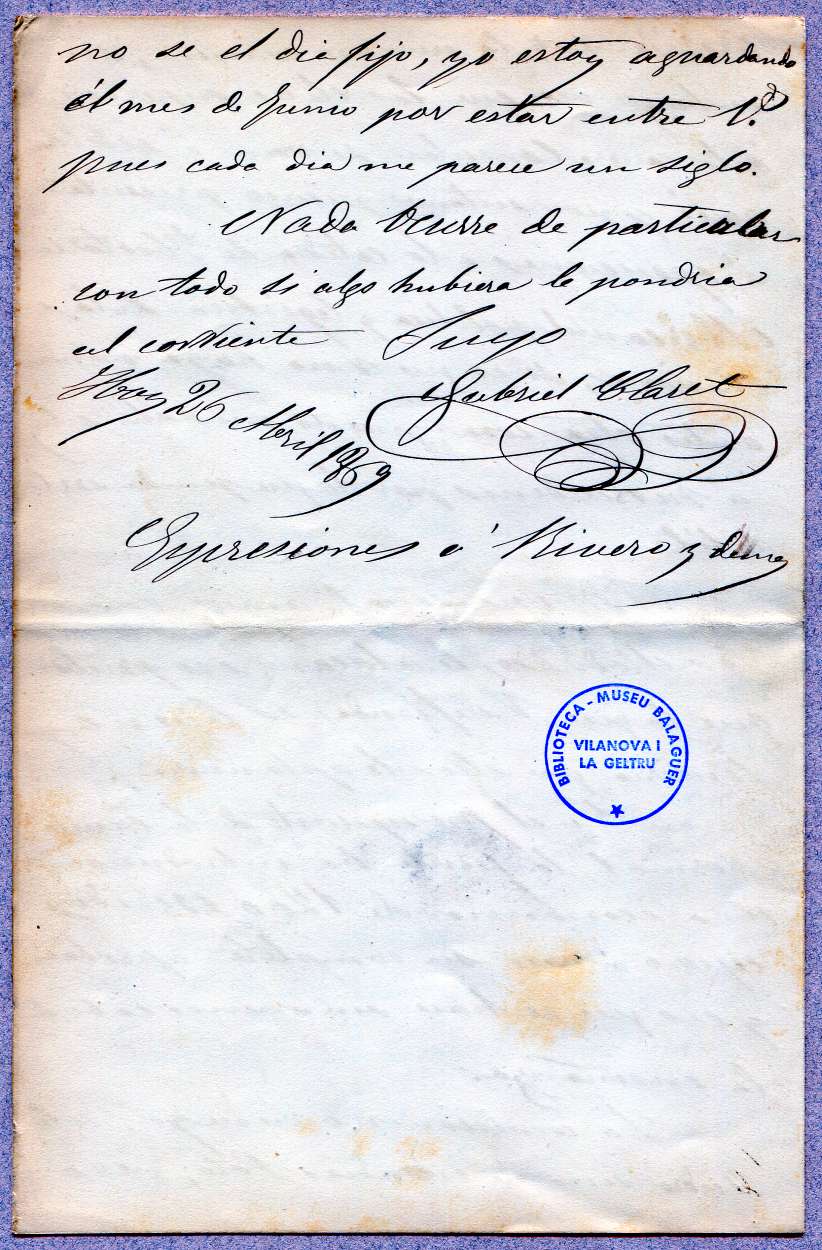 no se el dia fijo, yo estoy aguardando
él mes de Junio por estar entre Vd.
pues cada dia me parece un siglo.
Nada Ocurre de particular
con todo si algo hubiera le pondria
al corriente Suyo
Gabriel Claret
Hoy 26 Abril 1869
Expresiones á Rivero y demas
BIBLIOTECA - MUSEU BALAGUER
VILANOVA I
LA GELTRU